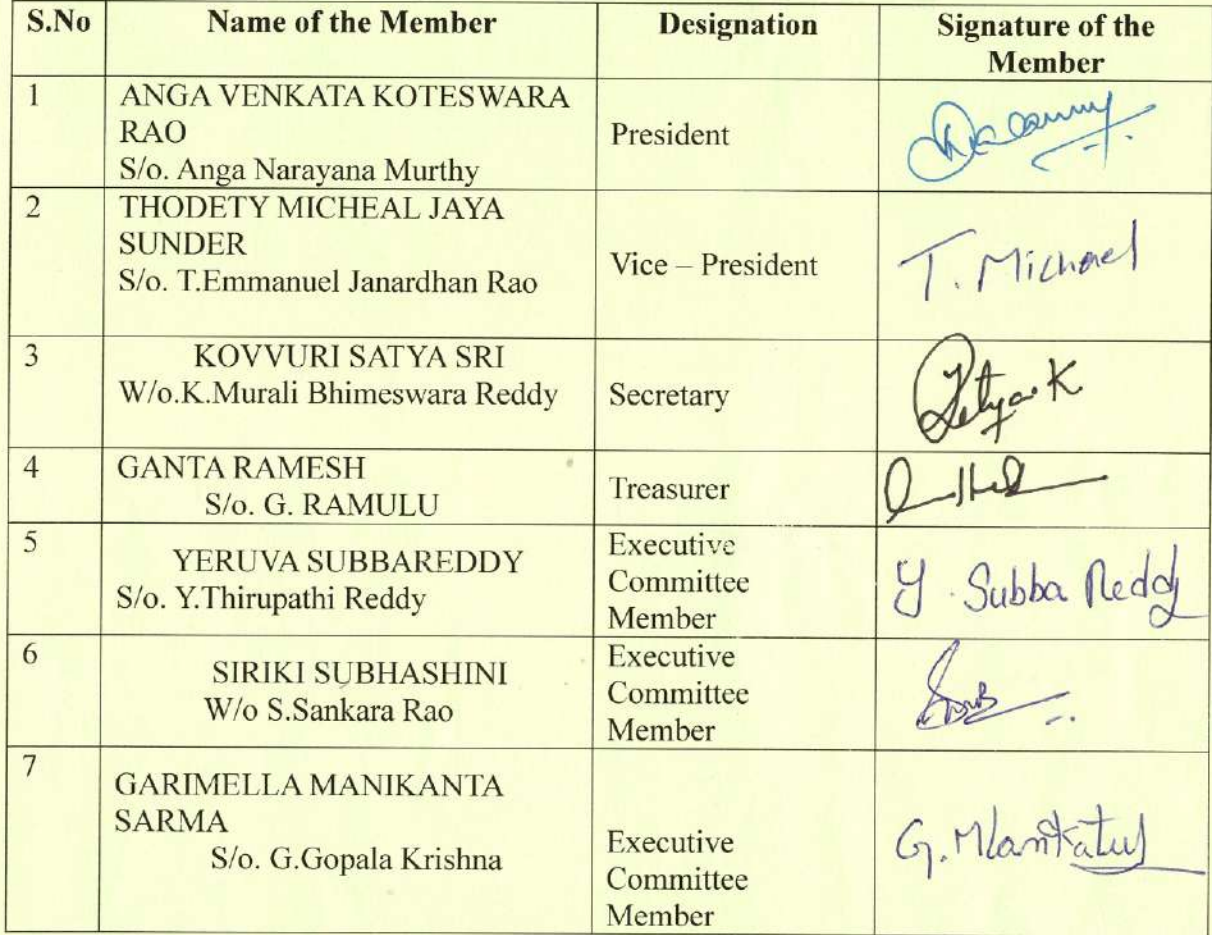 S.No Name of the Member Designation Signature of the
Member
1 ANGA VENKATA KOTESWARA
RAO
S/o. Anga Narayana Murthy
President
2 THODETY MICHEAL JAYA
SUNDER
S/o. T.Emmanuel Janardhan Rao
Vice – President
T. Michael
3 KOVVURI SATYA SRI
W/o.K.Murali Bhimeswara Reddy
Secretary
Satya K
4 GANTA RAMESH
S/o. G. RAMULU
Treasurer
5 YERUVA SUBBAREDDY
S/o. Y.Thirupathi Reddy
Executive
Committee
Member
Y. Subba Reddy
6 SIRIKI SUBHASHINI
W/o S.Sankara Rao
Executive
Committee
Member
7 GARIMELLA MANIKANTA
SARMA
S/o. G.Gopala Krishna
Executive
Committee
Member